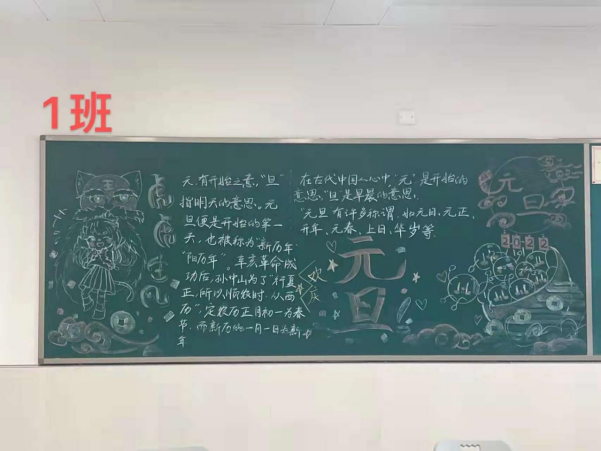 1班
虎虎生
元,有开始之意,"旦"
指明天的意思。元
旦便是开始的第一
天,也被称为"新历年"
"阳历年"。辛亥革命成
功后,孙中山为了"行夏
正,所以顺农时,从西
历",定农历正月初一为春
节,而新历的一月一日为新
年
在古代中国人心中,"元"是开始的
意思,"旦"是早晨的意思.
"元旦"有许多称谓,如元日、元正、
开年、元春、上日、华岁等
元
旦
元旦
2022